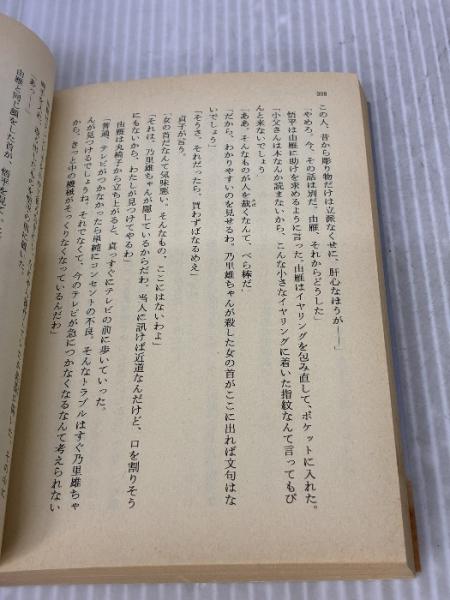 208
この人、昔から彫り物だけは立派なくせに、肝心なほうが――」
「やめろ。今、その話は別だ。由雁、それからどうした」
悟平は由雁に助けを求めるように言った。由雁はイヤリングを包み直して、ポケットに入れた。
「小父さんは本なんか読まないから、こんな小さなイヤリングに着いた指紋なんて言ってもぴ
んと来ないでしょう」
「ああ。そんなものが人を裁くなんて、べら棒だ」
「だから、わかりやすいのを見せるわ。乃里雄ちゃんが殺した女の首がここに出れば文句はな
いでしょう」
「そうさ。それだったら、買わずばなるめえ」
貞子が言う。
「女の首だなんて気味悪い。そんなもの、ここにはないわよ」
「それは、乃里雄ちゃんが隠しているからだわ。当人に訊けば近道なんだけど、口を割りそう
にもないから、わたしが見つけてやるわ」
由雁は丸椅子から立ち上がると、真っすぐにテレビの前に歩いていった。
「普通、テレビがつかなかったら単純にコンセントの不良。そんなトラブルはすぐ乃里雄ちゃ
んが見つけるでしょうね。それでなくて、今のテレビが急につかなくなるなんて考えられない
から、きっと中の機械がそっくりなくなっているんだわ」
「あっ――」
由雁と同じ顔をした首が、悟平を見て